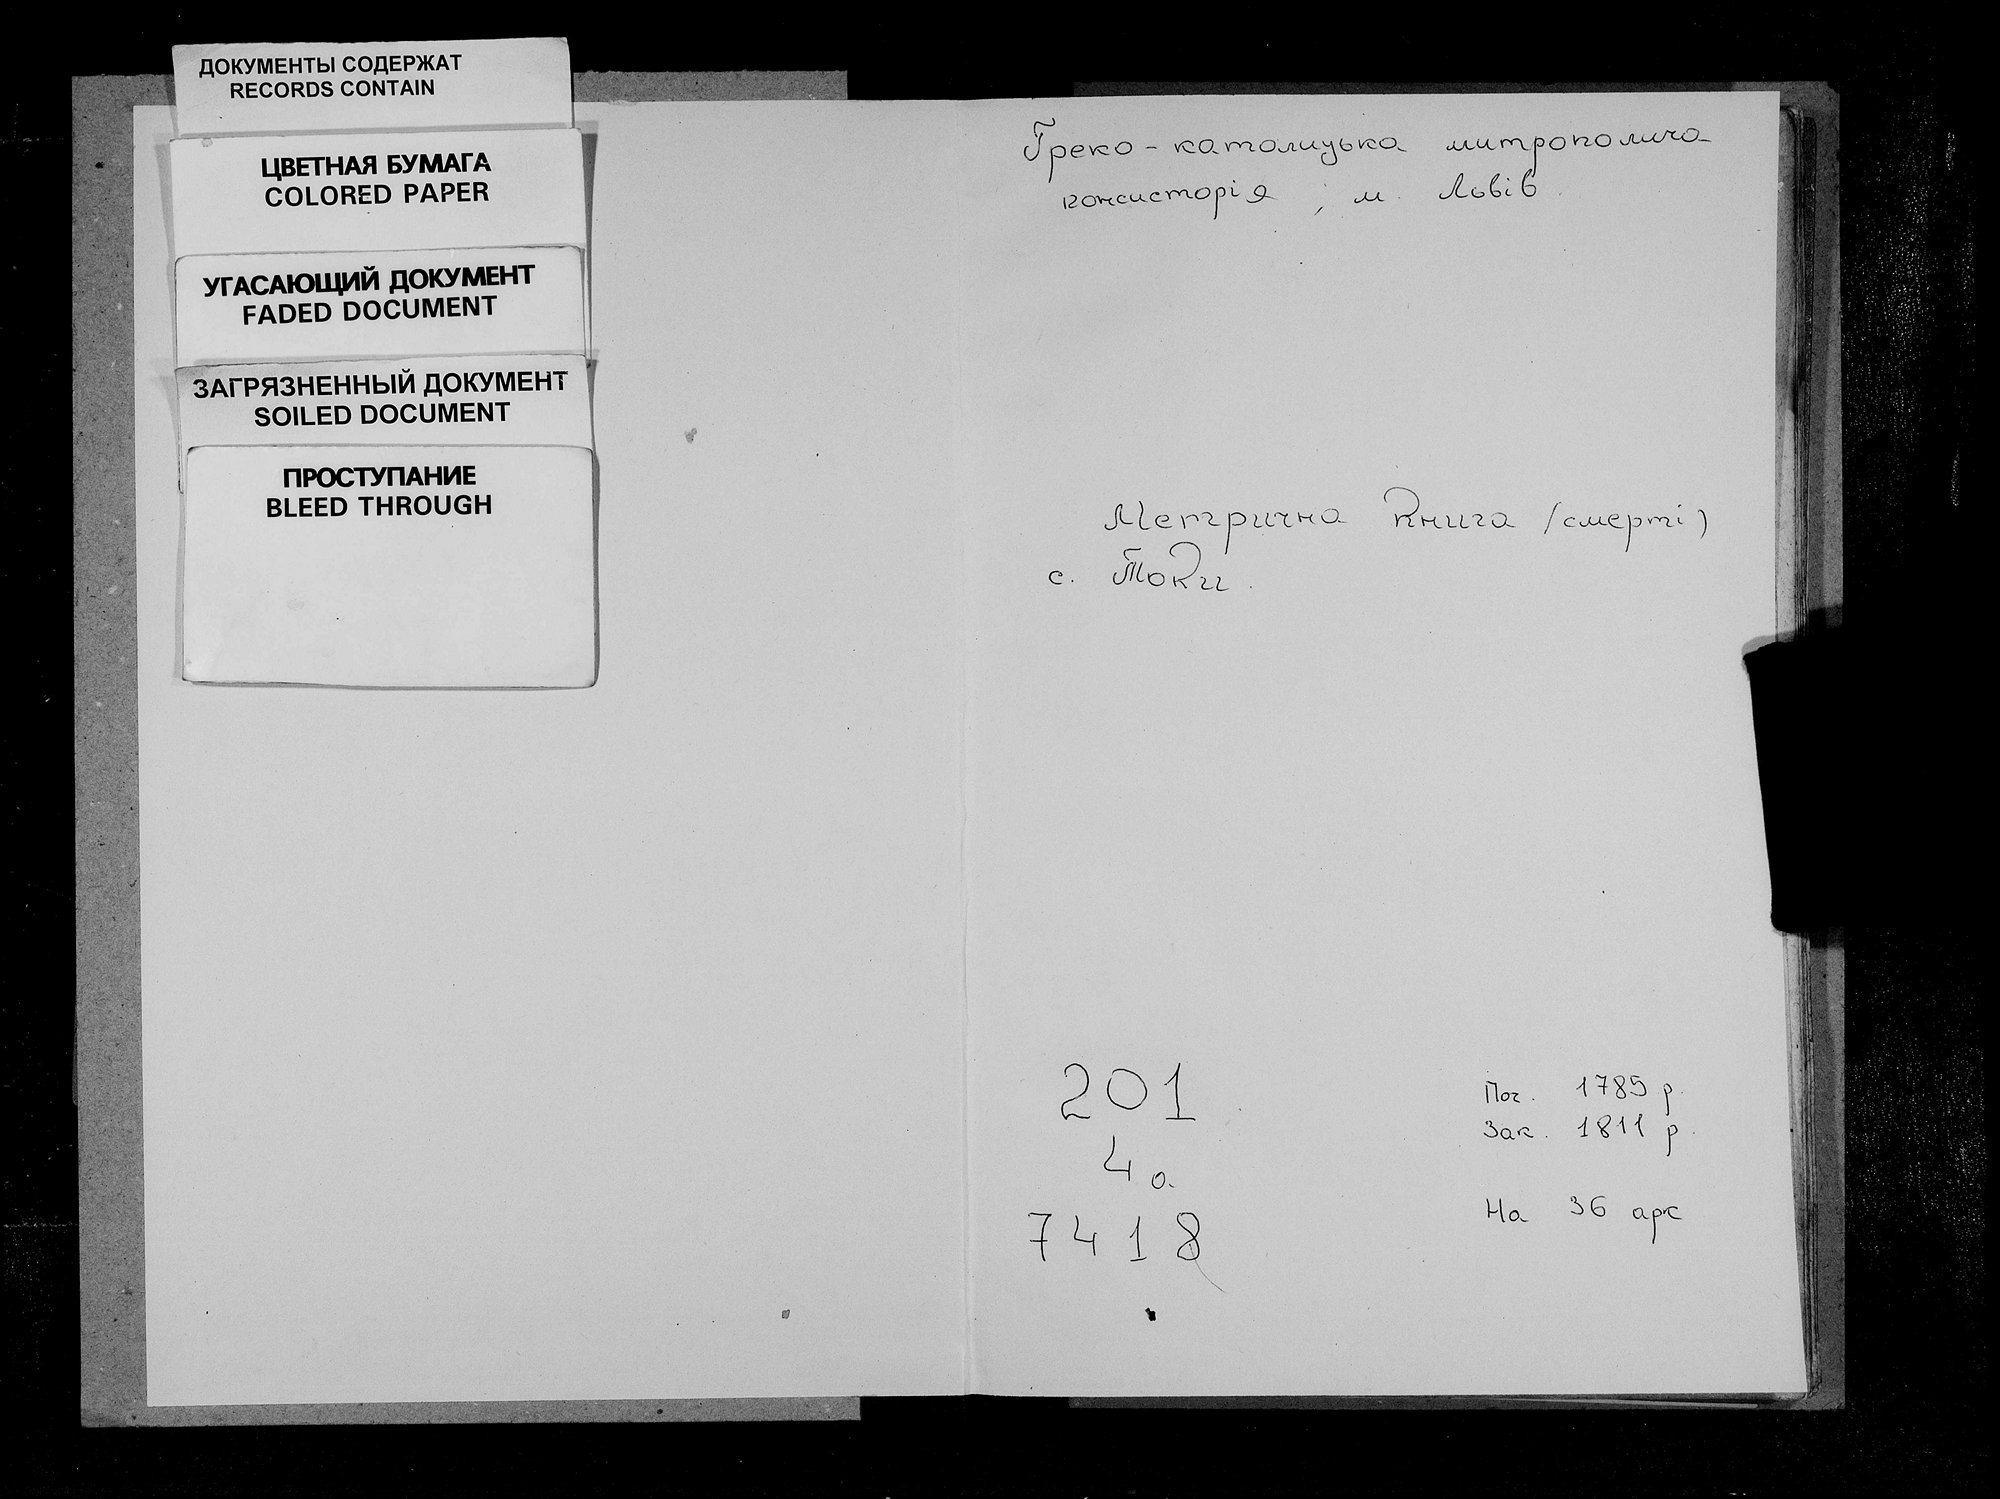 ДОКУМЕНТЫ СОДЕРЖАТ
RECORDS CONTAIN
ЦВЕТНАЯ БУМАГА
COLORED PAPER
УГАСАЮЩИЙ ДОКУМЕНТ
FADED DOCUMENT
ЗАГРЯЗНЕННЫЙ ДОКУМЕНТ
SOILED DOCUMENT
ПРОСТУПАНИЕ
BLEED THROUGH
Греко-католицька митрополича
консисторія, м. Львів.
Метрична книга (смерті)
с. Токи.
201
4о.
7418
Поч. 1785 р.
Зак. 1811 р.
На 36 арк